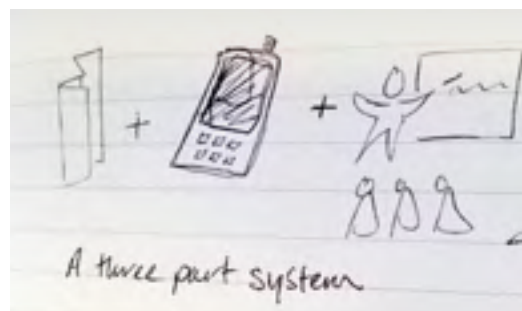 A three part system